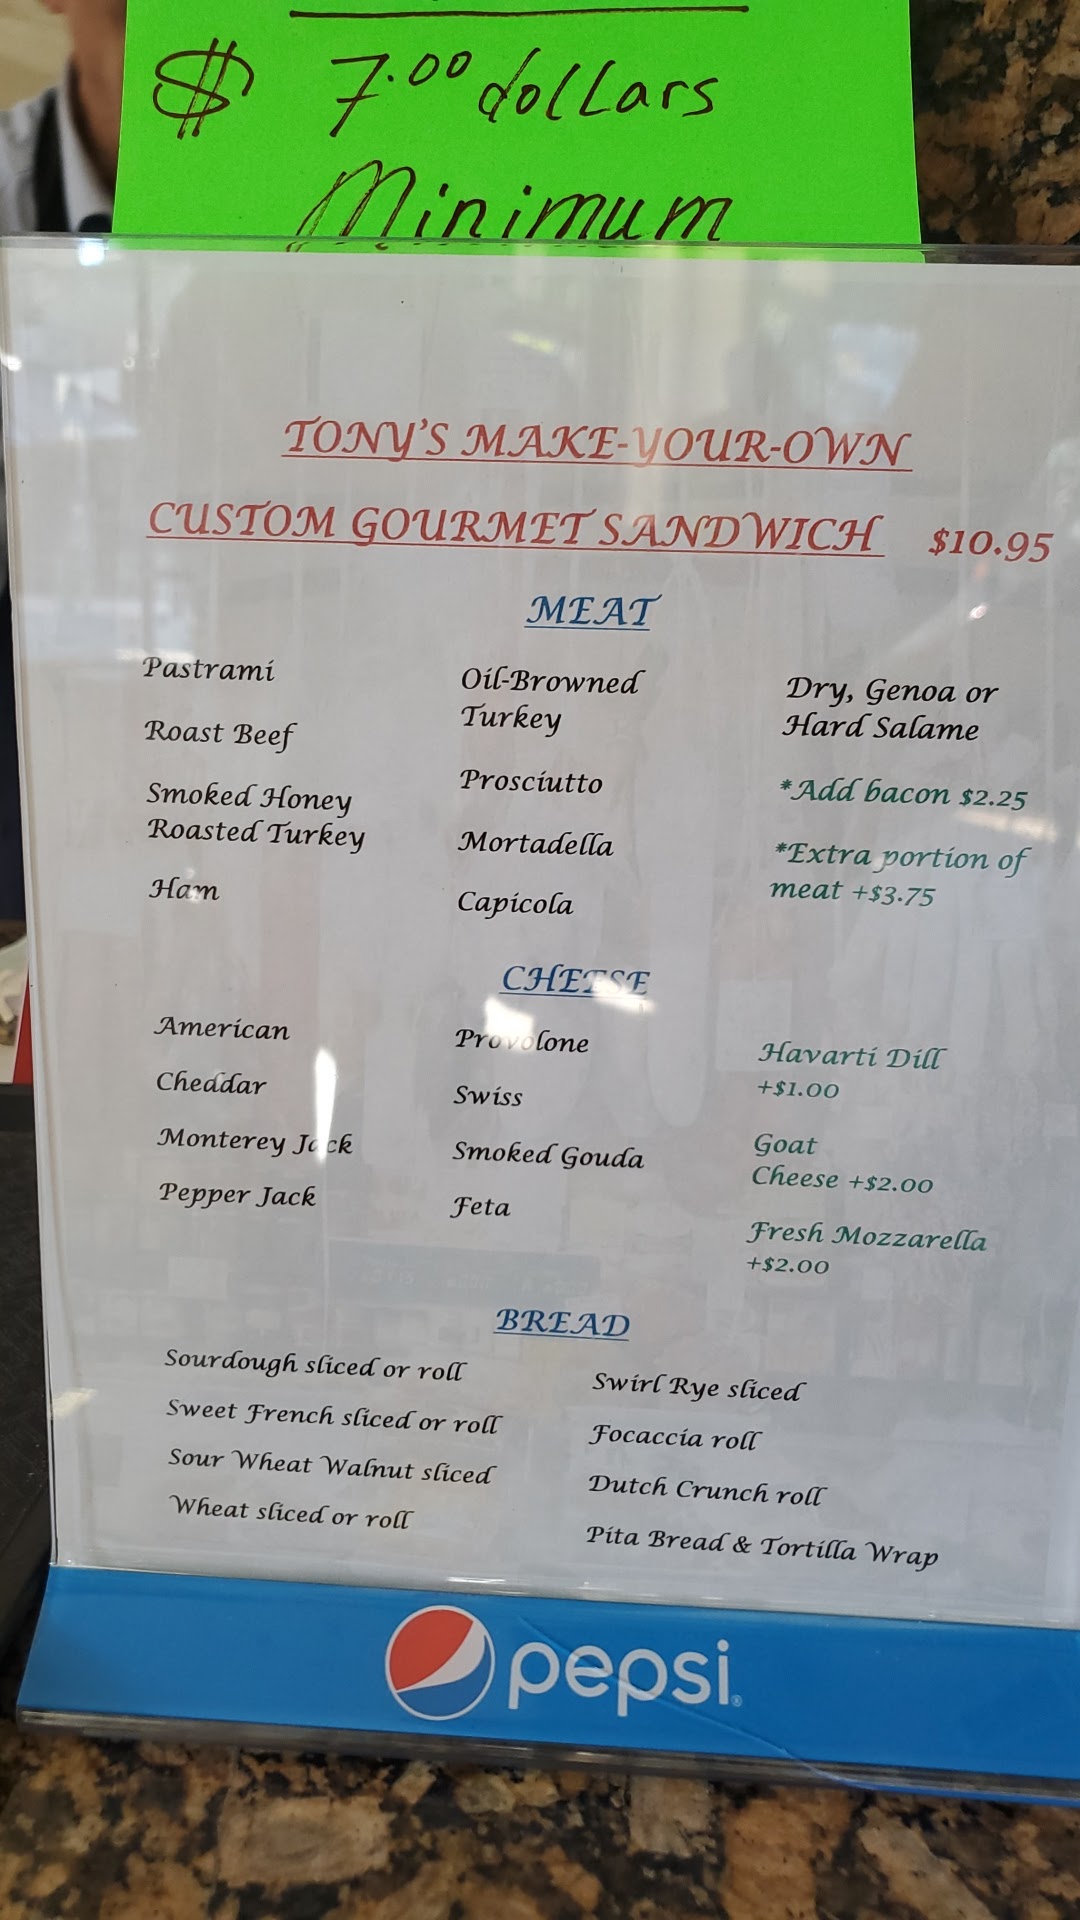 $ 7.00 dollars
Minimum
TONY'S MAKE-YOUR-OWN
CUSTOM GOURMET SANDWICH $10.95
MEAT
Pastrami
Roast Beef
Smoked Honey
Roasted Turkey
Ham
Oil-Browned
Turkey
Prosciutto
Mortadella
Capicola
Dry, Genoa or
Hard Salame
*Add bacon $2.25
*Extra portion of
meat +$3.75
CHEESE
American
Cheddar
Monterey Jack
Pepper Jack
Provolone
Swiss
Smoked Gouda
Feta
Havarti Dill
+$1.00
Goat
Cheese +$2.00
Fresh Mozzarella
+$2.00
BREAD
Sourdough sliced or roll
Sweet French sliced or roll
Sour Wheat Walnut sliced
Wheat sliced or roll
Swirl Rye sliced
Focaccia roll
Dutch Crunch roll
Pita Bread & Tortilla Wrap
pepsi